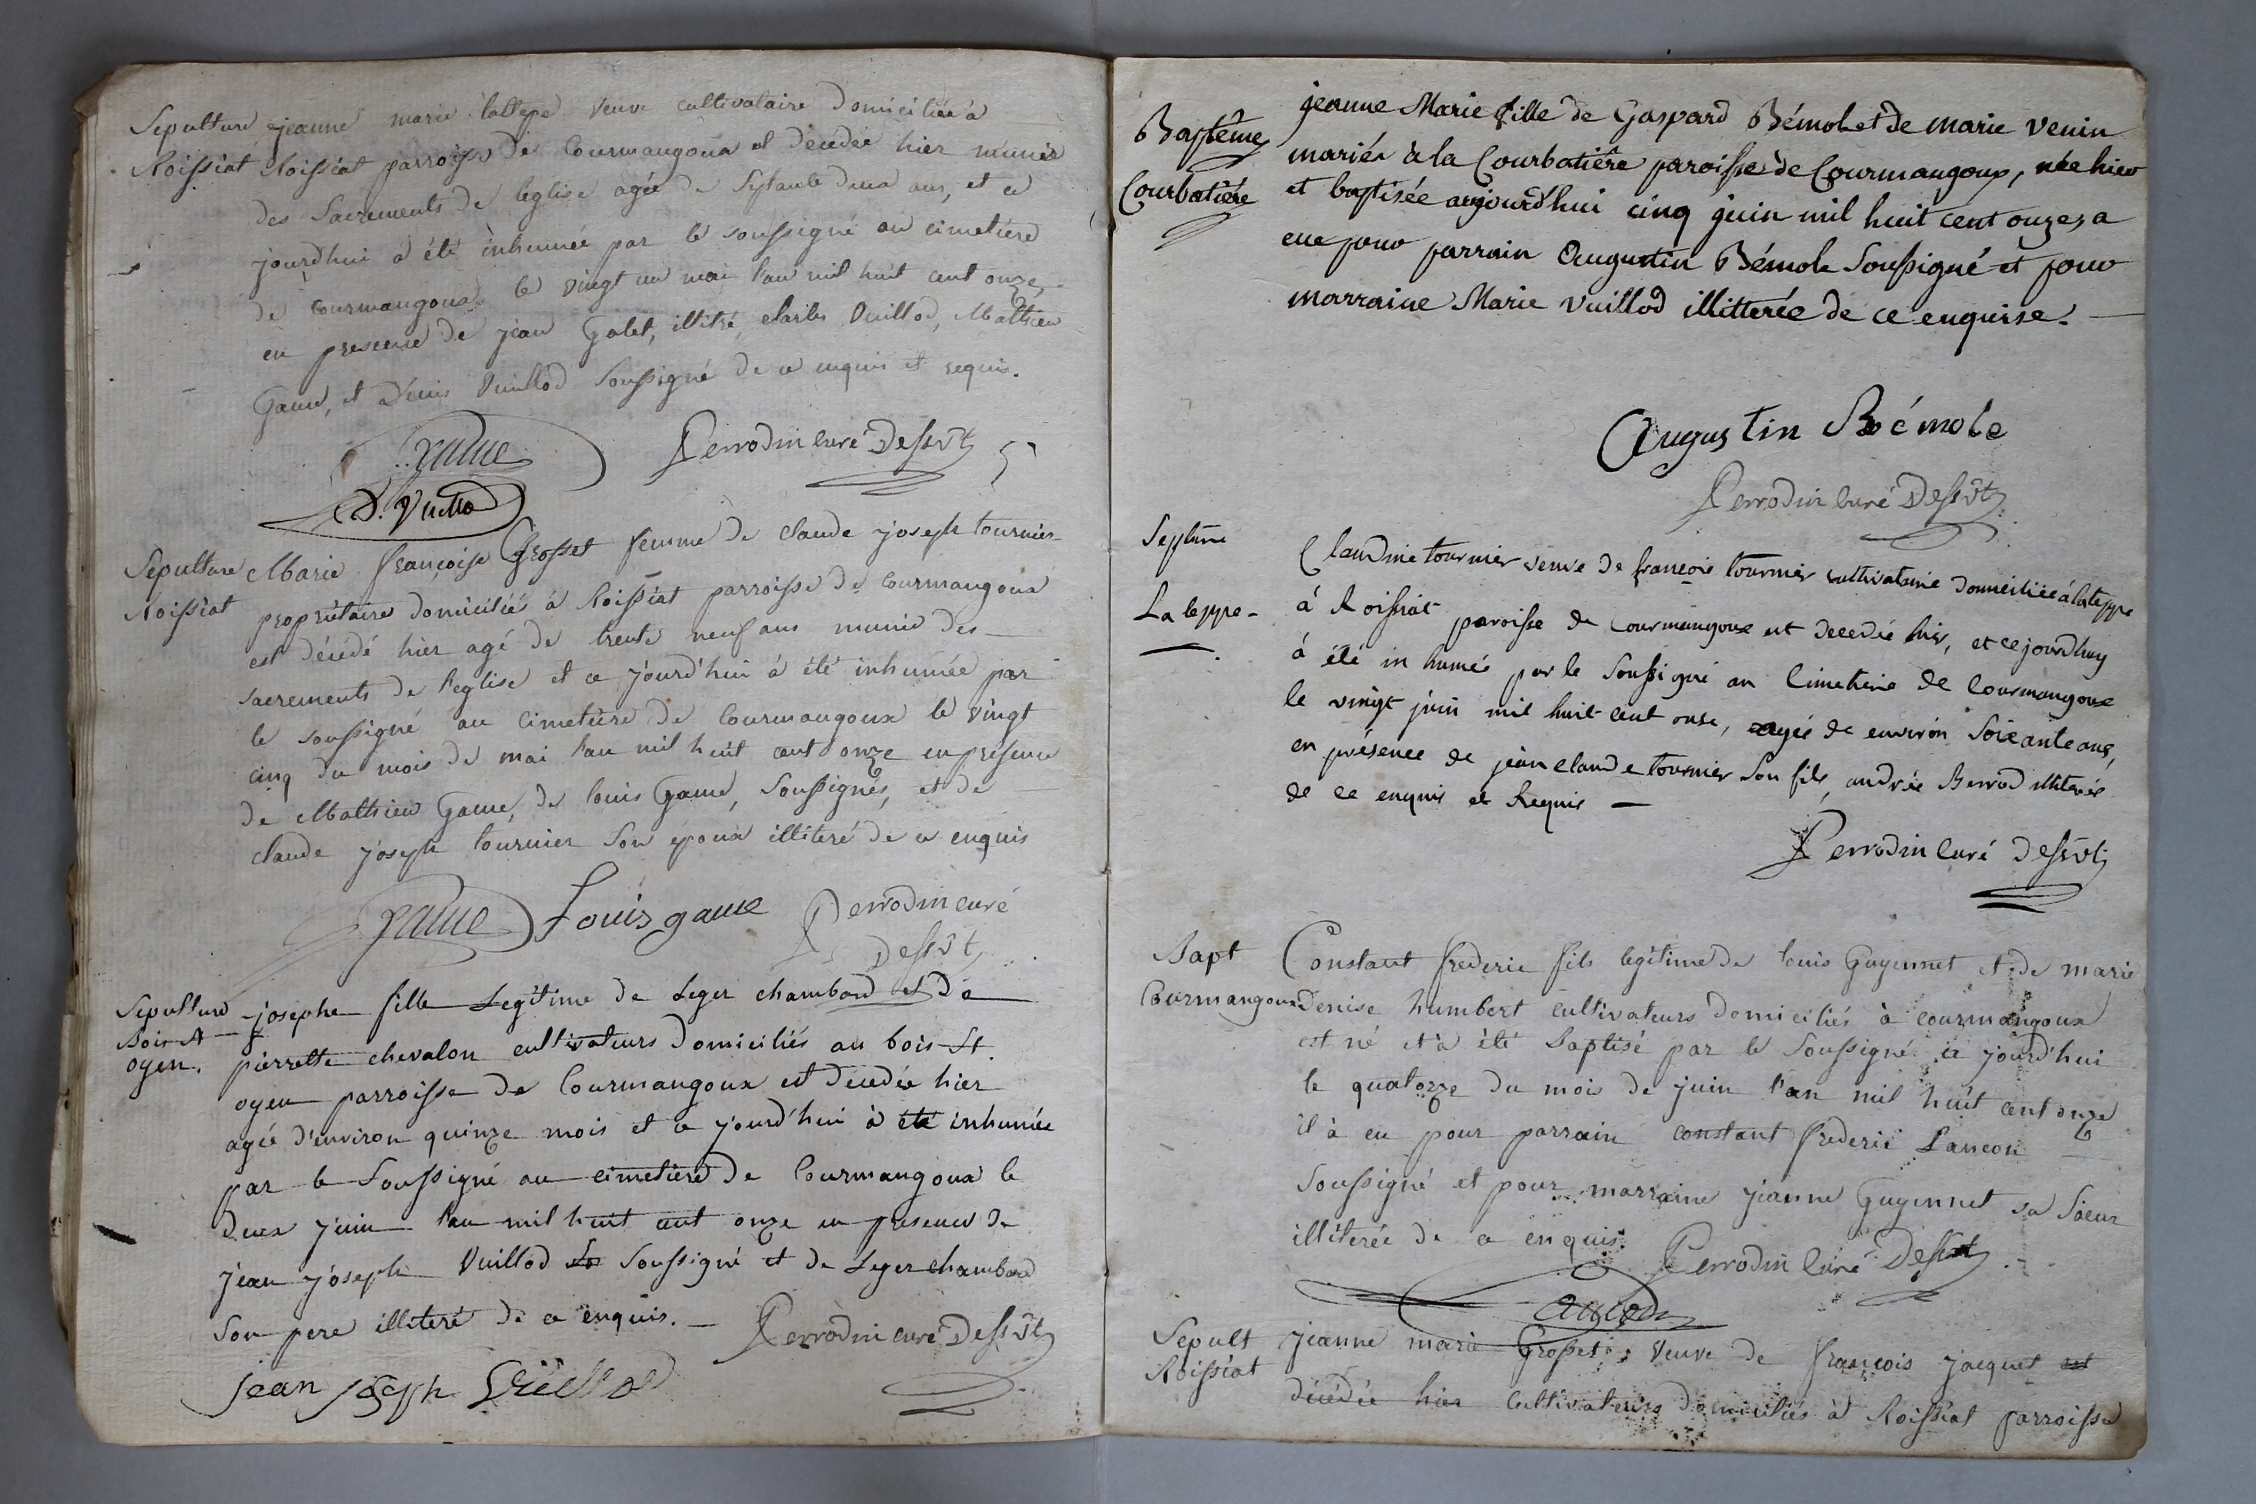 Sepulture jeanne marie latepe veuve cultivataire domiciliée à
Roissiat Roissiat parroisse de Courmangoux est décédée hier munie
des Sacrements de l'eglise agée de Septante deux ans, et ce
jourd'hui à été inhumée par le soussigné au cimetière
de Courmangoux le vingt un mai l'an mil huit cent onze,
en presence de jean Galet, illitré, charles Vuillod, Mathieu
Game, et Denis Vuillod Soussigné de ce enquis et requis.
Game Perrodin curé Dessvt
D. Vuillod
Sepulture Marie françoise Grosset femme de claude joseph tournier
Roissiat propriétaire domiciliés à Roissiat parroisse de Courmangoux
est décédé hier agé de trente neuf ans munie des
sacrements de l'eglise et ce jourd'hui à été inhumée par
le soussigné au cimetière de Courmangoux le vingt
cinq du mois de mai l'an mil huit cent onze en présence
de Mathieu Game, de louis Game, Soussignés, et de
claude joseph tournier Son époux illiteré de ce enquis
Game Louis game Perrodin curé
Dessvt
Sepulture josephe fille Legitime de Leger chambard et de
Bois St
oyen. pierrette chevalon cultivateurs domiciliés au bois St.
oyen parroisse de Courmangoux est decedée hier
agée d'environ quinze mois et ce jourd'hui à été inhumée
par le Soussigné au cimetière de Courmangoux le
deux juin l'an mil huit cent onze en presence de
jean joseph Vuillod Soussigné et de Leger chambard
Son pere illiteré de ce enquis. Perrodin curé Dessvt
jean joseph Vuillod
jeanne Marie fille de Gaspard Bémole et de marie venin
Baptême mariés à la Courbatière paroisse de Courmangoux, née hier
Courbatière et baptisée aujourd'hui cinq juin mil huit cent onze, a
eue pour parrain Augustin Bémole Soussigné et pour
marraine Marie Vuillod illitterée de ce enquise.
Augustin Bémole
Perrodin curé Dessvt
Septure Claudine tournier veuve de françois tournier cultivataire domiciliée à lateppe
La teppe à Roissiat paroisse de courmangoux est decedée hier, et cejourdhuy
à été in humée par le Soussigné au Cimetiere de Courmangoux
le vingt juin mil huit cent onse, agée de environ Soixante ans,
en présence de jean claude tournier Son fils, andrée Berrod illiterés
de ce enquis et Requis
Perrodin Curé Dessvt
Bapt Constant frederic fils legitime de louis Guyennet et de marie
Courmangoux Denise humbert cultivateurs domiciliés à courmangoux
est né et à été Baptisé par le Soussigné ce jourd'hui
le quatorze du mois de juin l'an mil huit cent onze
il à eu pour parrain constant frederic Lancon
Soussigné et pour marraine jeanne Guyennet sa Soeur
illiterée de ce enquis. Perrodin Curé Dessvt
Sepult jeanne marie Grosset, veuve de françois jacquet est
Roissiat décédée hier Cultivateurs domiciliés à Roissiat parroisse